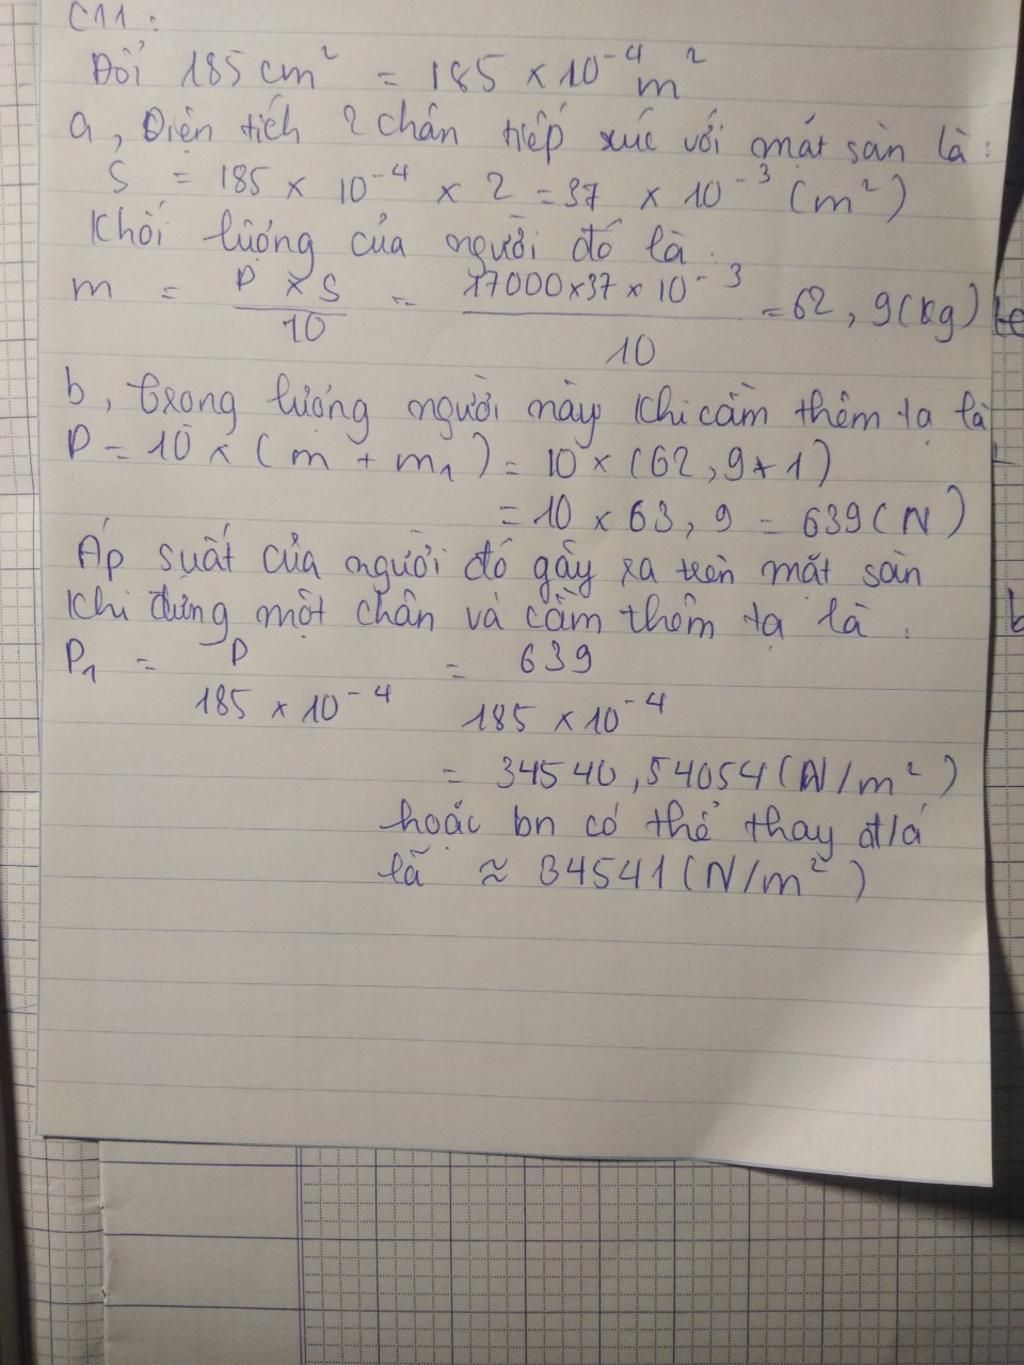 C11:
Đổi 185 cm² = 185 x 10⁻⁴ m²
a, Diện tích 2 chân tiếp xúc với mặt sàn là:
S = 185 x 10⁻⁴ x 2 = 37 x 10⁻³ (m²)
Khối lượng của người đó là:
m = P x S / 10 = 17000 x 37 x 10⁻³ / 10 = 62,9 (kg)
b, Trọng lượng người này khi cầm thêm tạ là
P = 10 x (m + m₁) = 10 x (62,9 + 1)
= 10 x 63,9 = 639 (N)
Áp suất của người đó gây ra trên mặt sàn
khi đứng một chân và cầm thêm tạ là:
P₁ = P / 185 x 10⁻⁴ = 639 / 185 x 10⁻⁴
= 34540,54054 (N/m²)
hoặc bn có thể thay đ/á
là ≈ 34541 (N/m²)